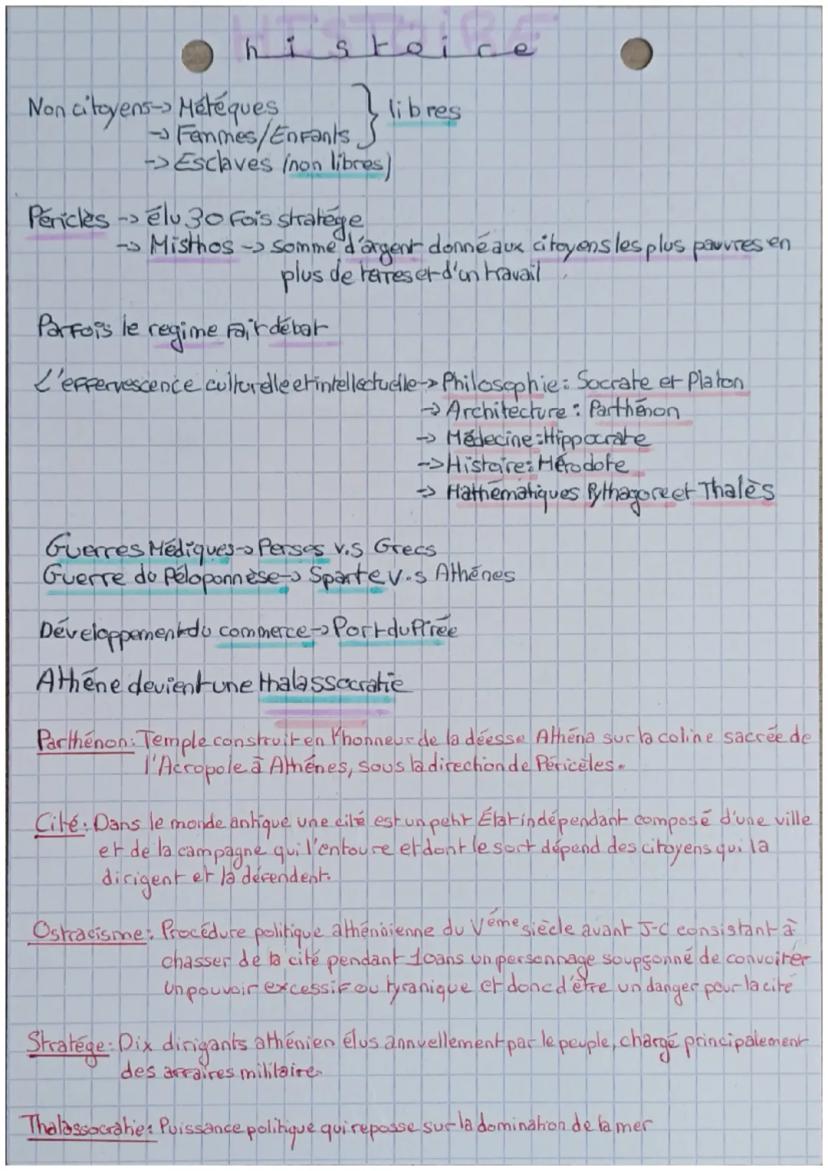 histoire
Non citoyens -> Métèques } libres
-> Femmes/Enfants
-> Esclaves (non libres)
Périclès -> élu 30 fois stratège
-> Misthos -> somme d'argent donné aux citoyens les plus pauvres en
plus de terres et d'un travail
Parfois le regime fait débat
L'effervescence culturelle et intellectuelle -> Philosophie : Socrate et Platon
-> Architecture : Parthénon
-> Médecine : Hippocrate
-> Histoire : Hérodote
-> Mathématiques Pythagore et Thalès
Guerres Médiques -> Perses v.s Grecs
Guerre du Péloponnèse -> Sparte v.s Athénes
Développement du commerce -> Port du Pirée
Athéne devient une thalassocratie
Parthénon : Temple construit en l'honneur de la déesse Athéna sur la coline sacrée de
l'Acropole à Athénes, sous la direction de Péricèles.
Cité : Dans le monde antique une cité est un petit État indépendant composé d'une ville
et de la campagne qui l'entoure et dont le sort dépend des citoyens qui la
dirigent et la défendent.
Ostracisme : Procédure politique athénienne du Vème siècle avant J-C consistant à
chasser de la cité pendant 10ans un personnage soupçonné de convoiter
un pouvoir excessif ou tyranique et donc d'être un danger pour la cité
Stratége : Dix dirigants athénien élus annuellement par le peuple, chargé principalement
des affaires militaire.
Thalassocratie : Puissance politique qui reposse sur la domination de la mer